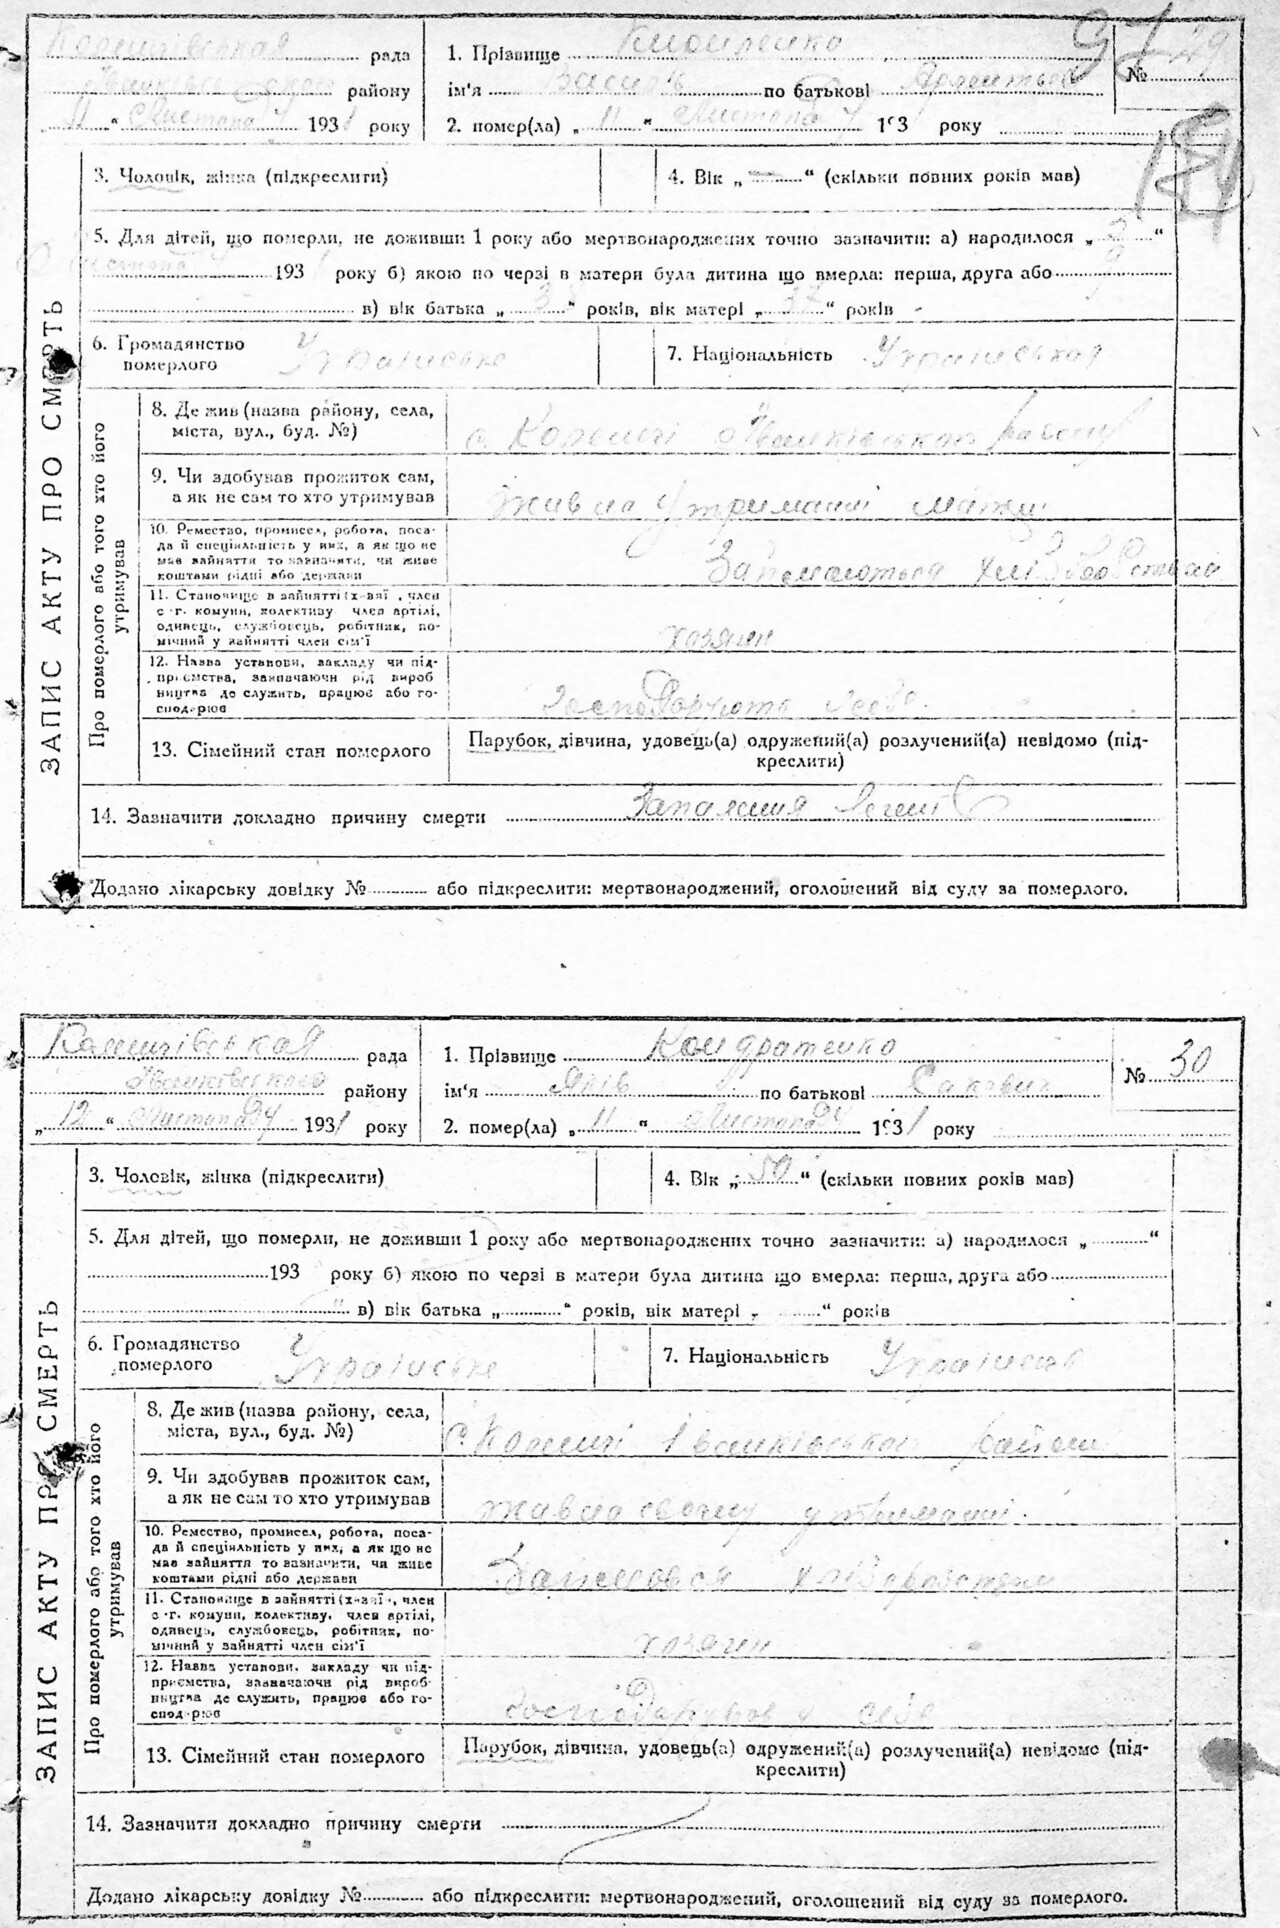 рада
району
„ 11 “ Листопаду 1931 року
1. Прізвище
№ 29
ім'я Василь по батькові
2. помер(ла) „ 11 “ Листопаду 193 року
97
3. Чоловік, жінка (підкреслити)
4. Вік „ — “ (скільки повних років мав)
5. Для дітей, що померли, не доживши 1 року або мертвонароджених точно зазначити: а) народилося „ “
193 року б) якою по черзі в матери була дитина що вмерла: перша, друга або
в) вік батька „ “ років, вік матері „ 37 “ років
ЗАПИС АКТУ ПРО СМЕРТЬ
6. Громадянство померлого Українське
7. Національність Українськая
Про померлого або того хто його утримував
8. Де жив (назва району, села,
міста, вул., буд. №)
с. Іванківського району
9. Чи здобував прожиток сам,
а як не сам то хто утримував
жив на утриманні
10. Ремество, промисел, робота, поса-
да й спеціяльність у них, а як що не
мав зайняття то зазначити, чи живе
коштами рідні або держави
11. Становище в зайнятті (х-вяї, член
с.-г. комуни, колективу член артілі,
одинець, службовець, робітник, по-
мічний у зайнятті член сім'ї
хозяин
12. Назва установи, закладу чи під-
приємства, зазначаючи рід вироб
ництва де служить, працює або го-
сподарює
13. Сімейний стан померлого
Парубок, дівчина, удовець(а) одружений(а) розлучений(а) невідомо (під-
креслити)
14. Зазначити докладно причину смерти Запалення
Додано лікарську довідку № або підкреслити: мертвонароджений, оголошений від суду за померлого.
рада
району
„ 12 “ Листопаду 1931 року
1. Прізвище Кондратенко
№ 30
ім'я Яків по батькові
2. помер(ла) „ 11 “ Листопаду 1931 року
3. Чоловік, жінка (підкреслити)
4. Вік „ 50 “ (скільки повних років мав)
5. Для дітей, що померли, не доживши 1 року або мертвонароджених точно зазначити: а) народилося „ “
193 року б) якою по черзі в матери була дитина що вмерла: перша, друга або
в) вік батька „ “ років, вік матері „ “ років
ЗАПИС АКТУ ПРО СМЕРТЬ
6. Громадянство померлого Українське
7. Національність
Про померлого або того хто його утримував
8. Де жив (назва району, села,
міста, вул., буд. №)
с. Іванківського
9. Чи здобував прожиток сам,
а як не сам то хто утримував
жив на своему утриманні
10. Ремество, промисел, робота, поса-
да й спеціяльність у них, а як що не
мав зайняття то зазначити, чи живе
коштами рідні або держави
11. Становище в зайнятті (х-вяї, член
с.-г. комуни, колективу, член артілі,
одинець, службовець, робітник, по-
мічний у зайнятті член сім'ї
хозяин
12. Назва установи, закладу чи під-
приємства, зазначаючи рід вироб-
ництва де служить, працює або го-
сподарює
себе
13. Сімейний стан померлого
Парубок, дівчина, удовець(а) одружений(а) розлучений(а) невідомо (під-
креслити)
14. Зазначити докладно причину смерти
Додано лікарську довідку № або підкреслити: мертвонароджений, оголошений від суду за померлого.